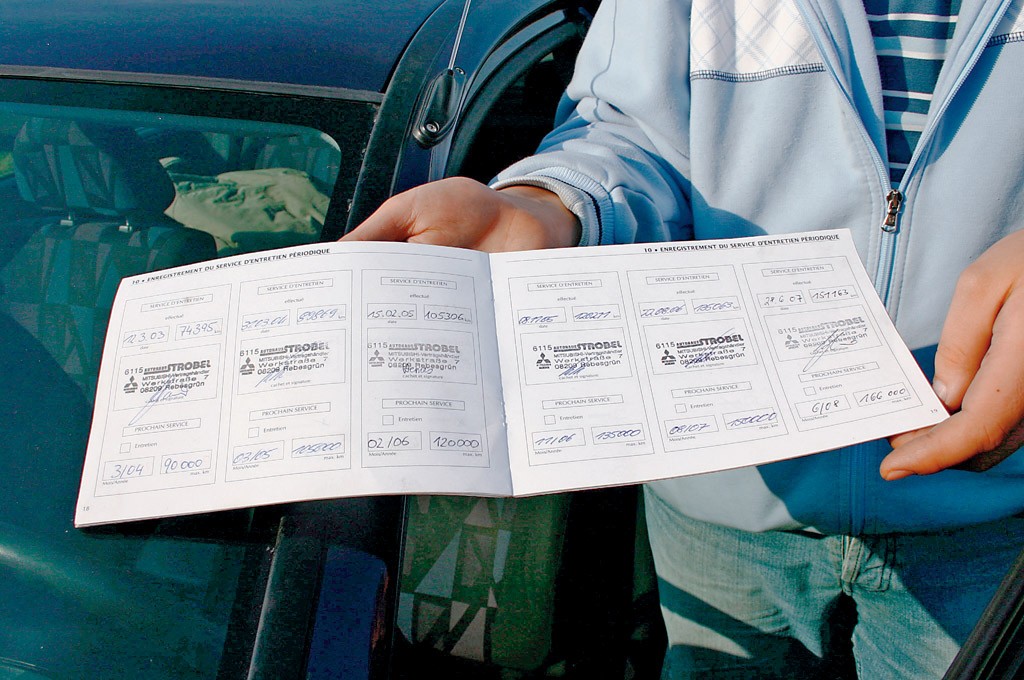 10 • ENREGISTREMENT DU SERVICE D'ENTRETIEN PÉRIODIQUE
SERVICE D'ENTRETIEN
effectué
12.3.03 74395 km
date
6115 AUTOHAUS STROBEL
MITSUBISHI-Vertragshändler
Werkstraße 7
08209 Rebesgrün
PROCHAIN SERVICE
Entretien
3/04 90000
Mois/Année max. km
SERVICE D'ENTRETIEN
effectué
km
date
6115 AUTOHAUS STROBEL
MITSUBISHI-Vertragshändler
Werkstraße 7
08209 Rebesgrün
PROCHAIN SERVICE
Entretien
03/05 105000
Mois/Année max. km
SERVICE D'ENTRETIEN
effectué
15.02.05 105306 km
date
6115 AUTOHAUS STROBEL
MITSUBISHI-Vertragshändler
Werkstraße 7
08209 Rebesgrün
cachet et signature
PROCHAIN SERVICE
Entretien
02/06 120000
Mois/Année max. km
18
10 • ENREGISTREMENT DU SERVICE D'ENTRETIEN PÉRIODIQUE
SERVICE D'ENTRETIEN
effectué
km
date
6115 AUTOHAUS STROBEL
MITSUBISHI-Vertragshändler
Werkstraße 7
08209 Rebesgrün
cachet et signature
PROCHAIN SERVICE
Entretien
11/06 135000
Mois/Année max. km
SERVICE D'ENTRETIEN
effectué
22.08.06 km
date
6115 AUTOHAUS STROBEL
MITSUBISHI-Vertragshändler
Werkstraße 7
08209 Rebesgrün
cachet et signature
PROCHAIN SERVICE
Entretien
08/07 150000
Mois/Année max. km
SERVICE D'ENTRETIEN
effectué
28.6.07 151163 km
date
6115 AUTOHAUS STROBEL
MITSUBISHI-Vertragshändler
Werkstraße 7
08209 Rebesgrün
cachet et signature
PROCHAIN SERVICE
Entretien
6/08 166000
Mois/Année max. km
19